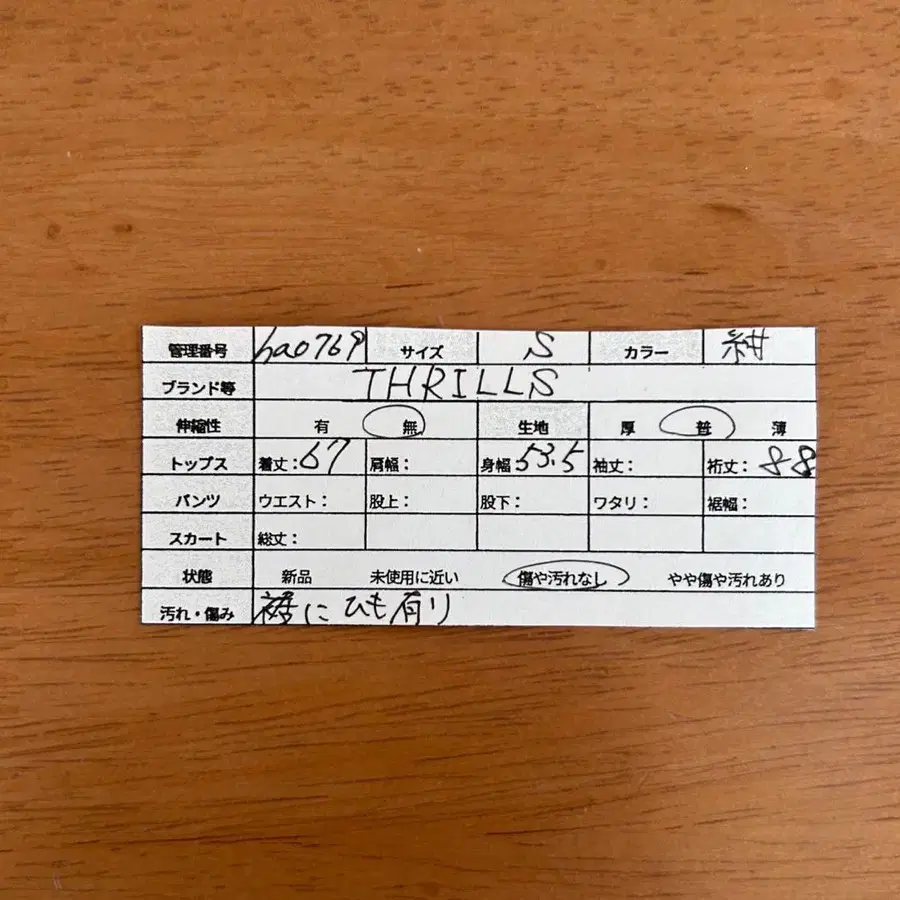 管理番号 ha0769 サイズ S カラー 紺
ブランド等 THRILLS
伸縮性 有 無 生地 厚 普 薄
トップス 着丈:67 肩幅: 身幅 53.5 袖丈: 裄丈:88
パンツ ウエスト: 股上: 股下: ワタリ: 裾幅:
スカート 総丈:
状態 新品 未使用に近い 傷や汚れなし やや傷や汚れあり
汚れ・傷み 裾にひも有り